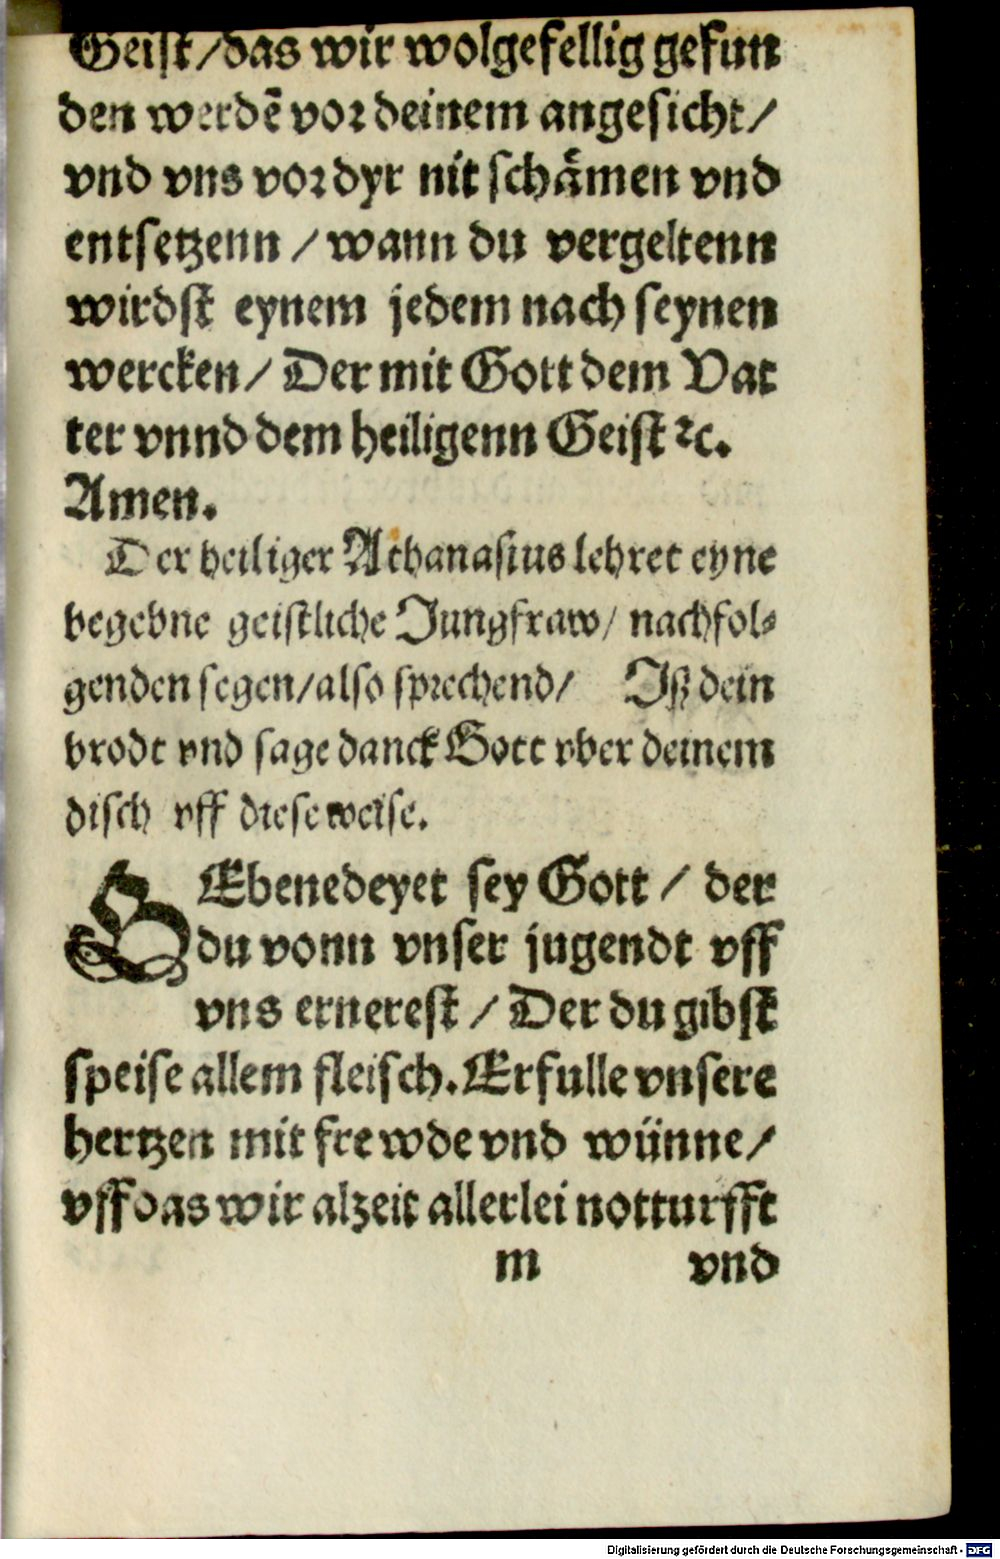 Geist/das wir wolgefellig gefun
den werdẽ voꝛ deinem angesicht/
vnd vns voꝛ dyr nit schaͤmen vnd
entsetzenn / wann du vergeltenn
wirdst eynem jedem nach seynen
wercken/ Der mit Gott dem Vat
ter vnnd dem heiligenn Geist ꝛc.
Amen.
Der heiliger Athanasius lehret eyne
begebne geistliche Jungfraw/ nachfol⸗
genden segen/also spꝛechend/ Jß dein
brodt vnd sage danck Gott vber deinem
disch vff diese weise.
GEbenedeyet sey Gott / der
du vonn vnser jugendt vff
vns ernerest / Der du gibst
speise allem fleisch. Erfulle vnsere
hertzen mit frewde vnd wünne/
vff das wir alzeit allerlei notturfft
m vnd
Digitalisierung gefördert durch die Deutsche Forschungsgemeinschaft - DFG